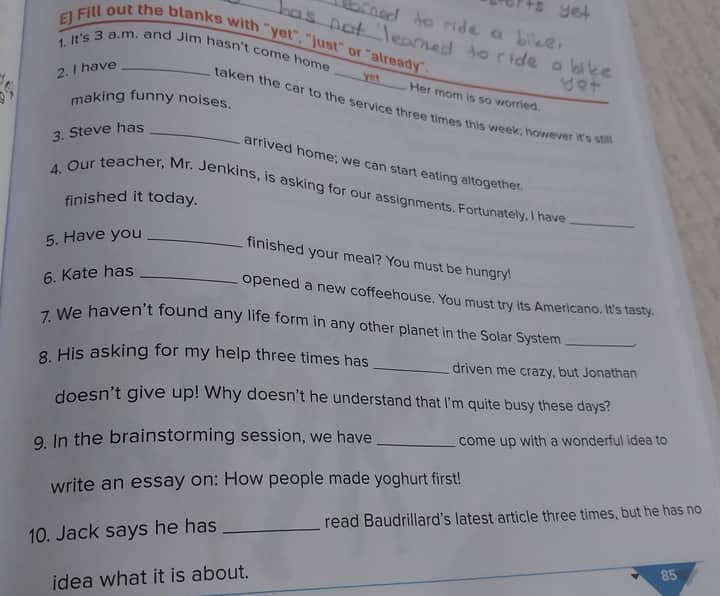 orts yet
learned to ride a bike.
has not learned to ride a bike
yet
E) Fill out the blanks with "yet", "just" or "already".
1. It's 3 a.m. and Jim hasn't come home yet Her mom is so worried.
2. I have ________ taken the car to the service three times this week; however it's still
making funny noises.
3. Steve has ________ arrived home; we can start eating altogether.
4. Our teacher, Mr. Jenkins, is asking for our assignments. Fortunately, I have ________
finished it today.
5. Have you ________ finished your meal? You must be hungry!
6. Kate has ________ opened a new coffeehouse. You must try its Americano. It's tasty.
7. We haven't found any life form in any other planet in the Solar System ________.
8. His asking for my help three times has ________ driven me crazy, but Jonathan
doesn't give up! Why doesn't he understand that I'm quite busy these days?
9. In the brainstorming session, we have ________ come up with a wonderful idea to
write an essay on: How people made yoghurt first!
10. Jack says he has ________ read Baudrillard's latest article three times, but he has no
idea what it is about.
85